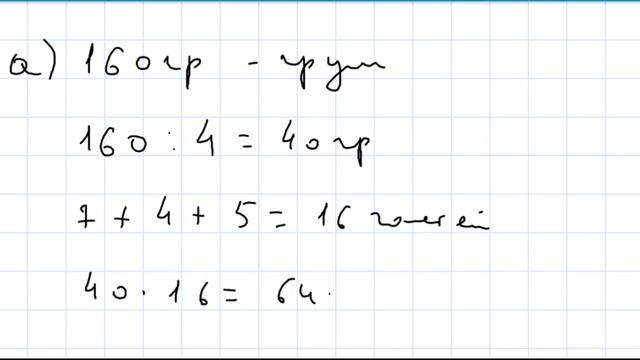 а) 160 гр - груш
160 : 4 = 40 гр
7 + 4 + 5 = 16 частей
40 · 16 = 64